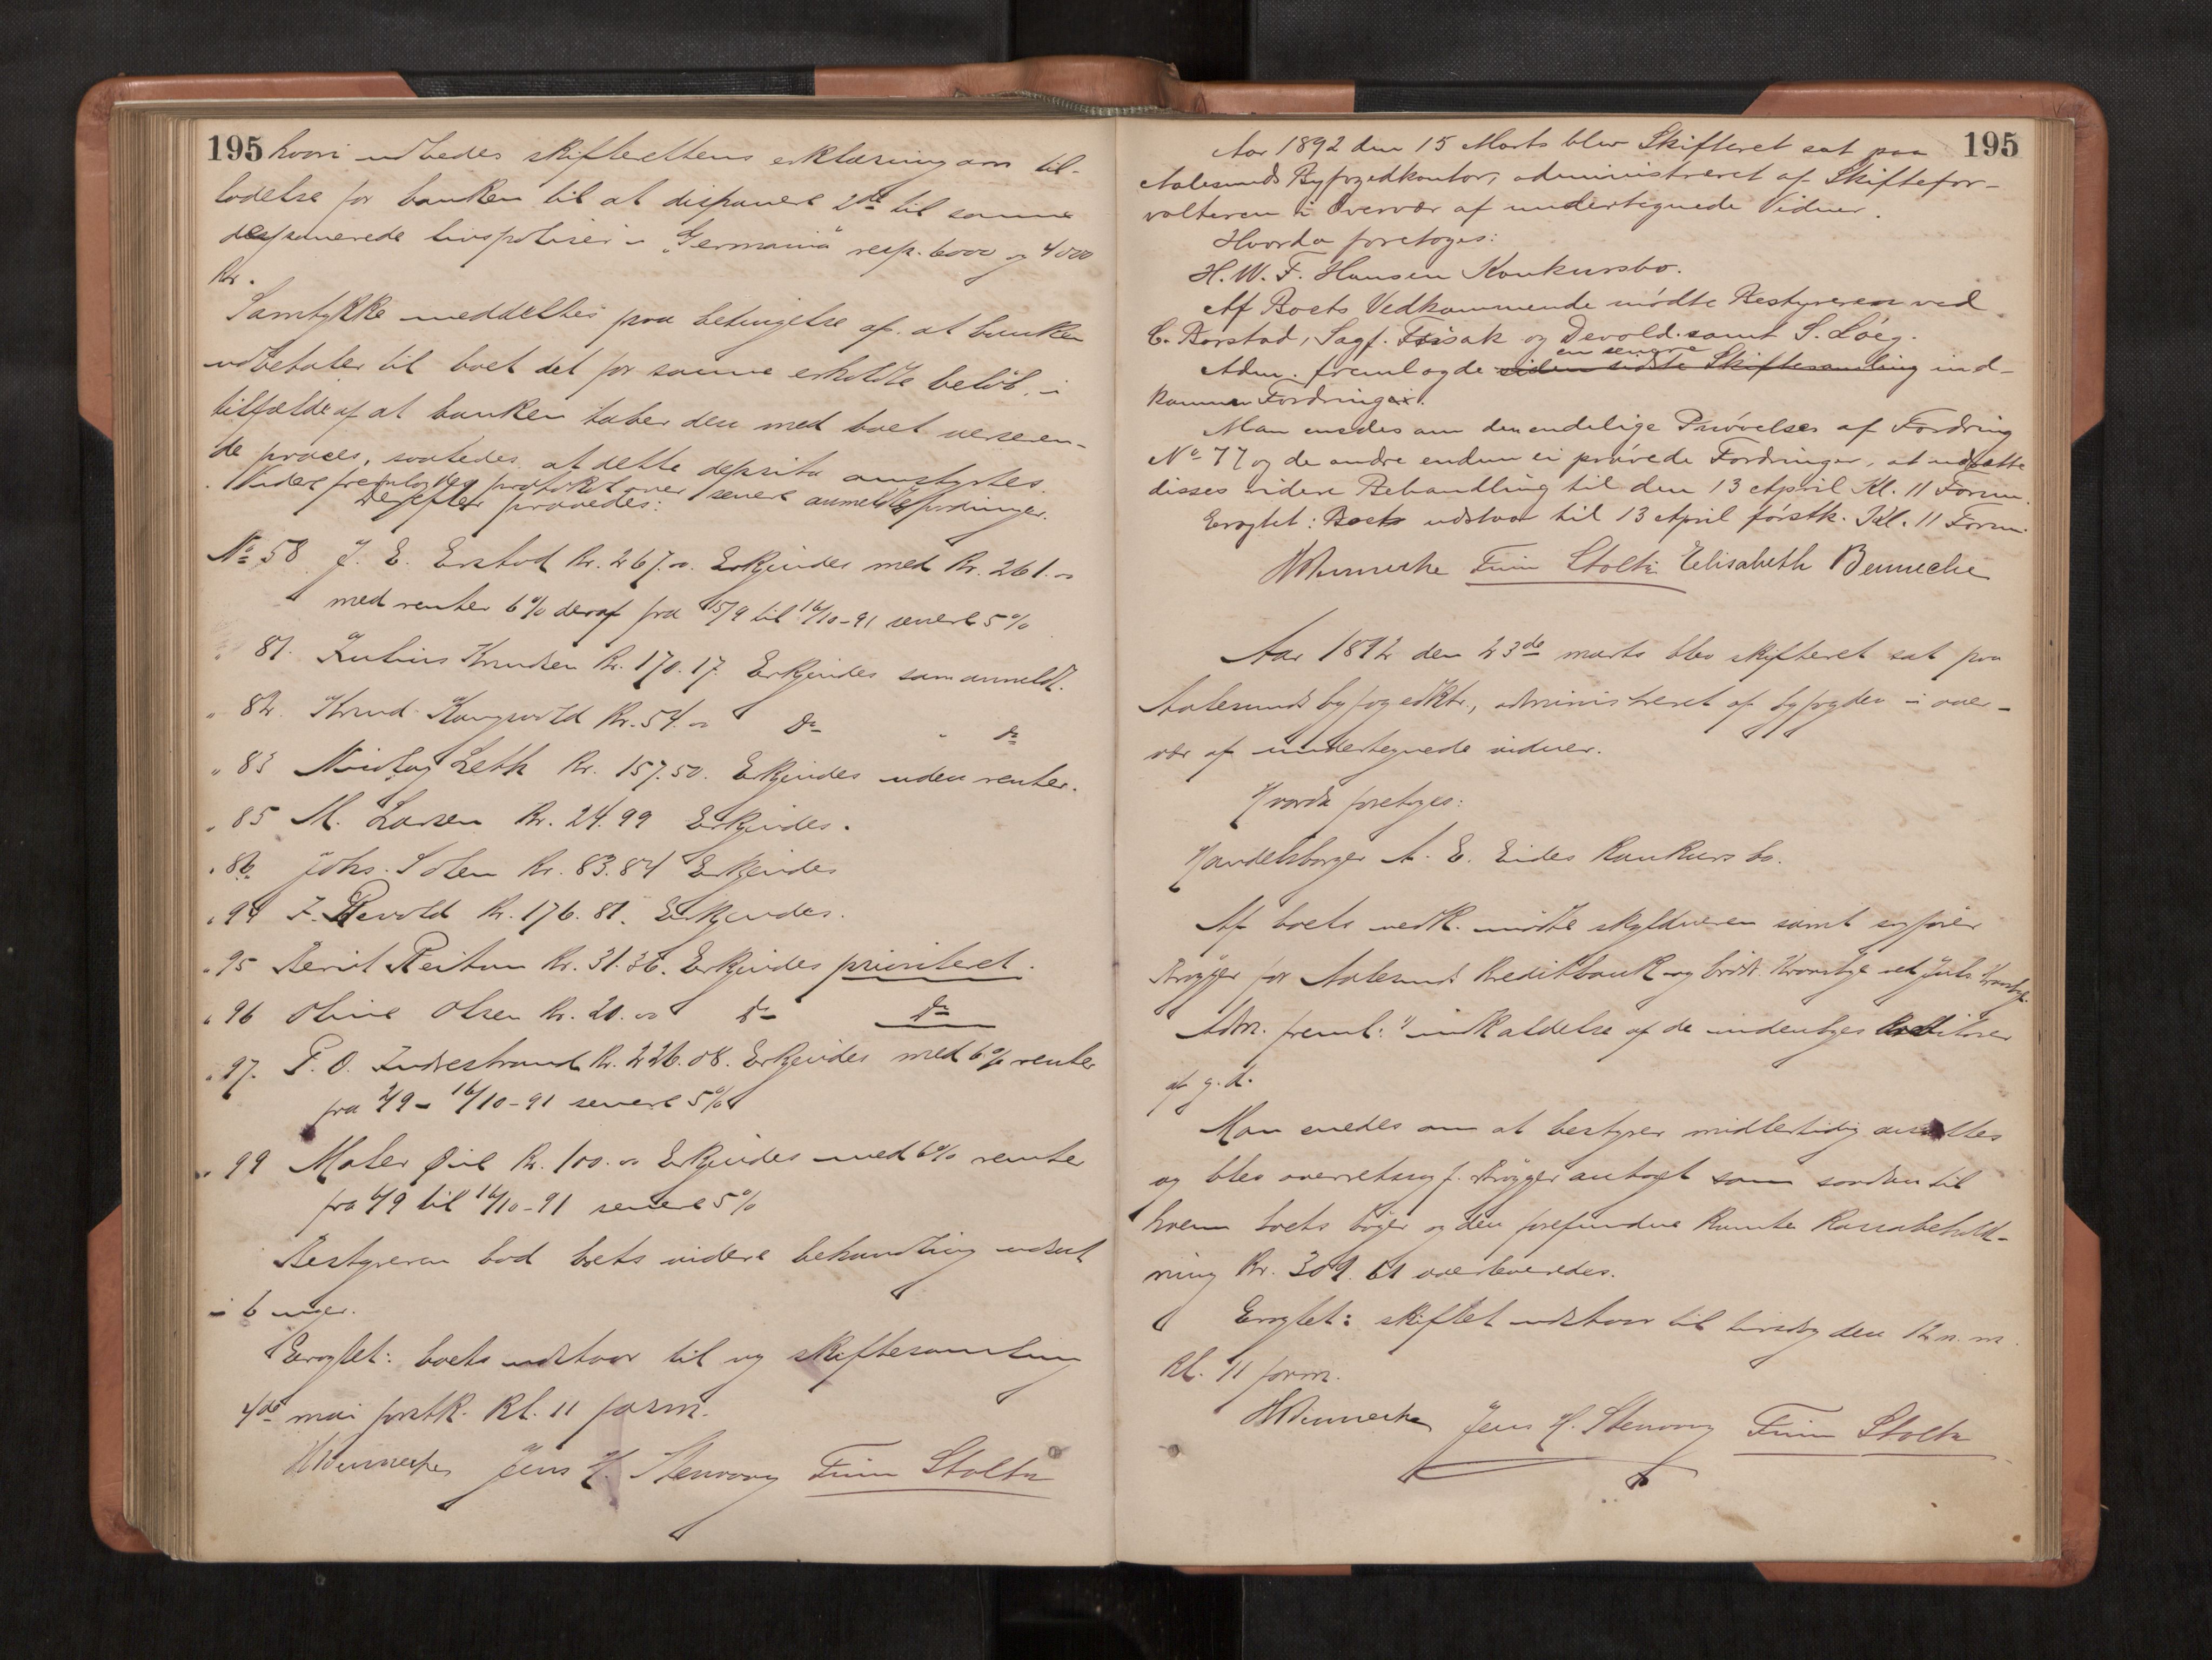 195 hvori udbedes skifterettens erklæring om til-
ladelse for banken til at disponere 2de til samme
deponerede livspoliser i "Germania" resp. 6000 og 4000
Kr.
Samtykke meddeltes paa betingelse af at banken
udbetaler til boet det for samme erholdte beløb, i
tilfælde af at banken taber den med boet verseren-
de proces, saaledes at dette deposita omstyrtes.
Videre fremlagdes protokol over senere anmeldte fordringer.
Derefter prøvedes:
No 58 J. E. Erstad Kr. 267.00. Erkjendes med Kr. 261.00
med renter 6% deraf fra 15/9 til 16/10-91 senere 5%
" 81. Julius Knudsen Kr. 170.17. Erkjendes som anmeldt.
" 82. Knud Kongsvold Kr. 54.00 do " do
" 83 Nicolay Leth Kr. 157.50. Erkjendes uden renter.
" 85 M. Larsen Kr. 24.99 Erkjendes.
" 86. Johs. Solem Kr. 83.84 Erkjendes
" 94 F. Devold Kr. 176.81. Erkjendes.
" 95 Berit Reitan Kr. 31.36. Erkjendes prioriteret.
" 96 Oline Olsen Kr. 20.00 do do
" 97. P. O. Indrestrand Kr. 226.08. Erkjendes med 6% renter
fra 2/9 - 16/10-91 senere 5%
" 99 Maler Øie Kr. 100.00 Erkjendes med 6% renter
fra 4/9 til 16/10-91 senere 5%
Bestyreren bad boets videre behandling udsat
i 6 uger.
Eragtet: boets udstaar til og skiftesamling
4de mai førstk. kl. 11 form.
HBennecke Jens H. Stenvaag Finn Stoltz
195
Aar 1892 den 15 Marts blev Skifteret sat paa
Aalesunds Byfogedkontor, administreret af Skiftefor-
valteren i Overvær af undertegnede Vidner.
Hvorda foretoges:
H. W. F. Hansen Konkursbo.
Af Boets Vedkommende mødte Bestyreren ved
C. Borstad, Sagf. Frisak og Devold samt S. Løeg.
en senere
Adm. fremlagde siden sidste Skiftesamling ind-
kommen Fordring.
Man enedes om den endelige Prøvelse af Fordring
No 77 og de andre endnu ei prøvede Fordringer, at udsætte
disses videre Behandling til den 13 April Kl. 11 Form.
Eragtet: Boets udstaar til 13 April førstk. Kl. 11 Form.
HBennecke Finn Stoltz Elisabeth Bennecke
Aar 1892 den 23de marts blev skifteret sat paa
Aalesunds byfogedktr., administreret af byfogden i over-
vær af undertegnede vidner.
Hvorda foretoges:
Handelsborger A. E. Eides konkursbo.
Af boets vedk. mødte skyldneren samt sagfører
Brøgger for Aalesunds Kreditbank og brødr. Kronstye ved Juls Kronstye.
Adm. freml: 1) indkaldelse af de indenbyes kreditorer
af g. d.
Man enedes om at bestyrer midlertidig ansættes
og blev overretssagf. Brøgger antaget som saadan til
hvem boets bøger og den forefundne kontante kassabehold-
ning Kr. 309.61 overleveredes.
Eragtet: skiftet udstaar til tirsdag den 12 n. m.
kl. 11 form.
HBennecke Jens H. Stenvaag Finn Stoltz